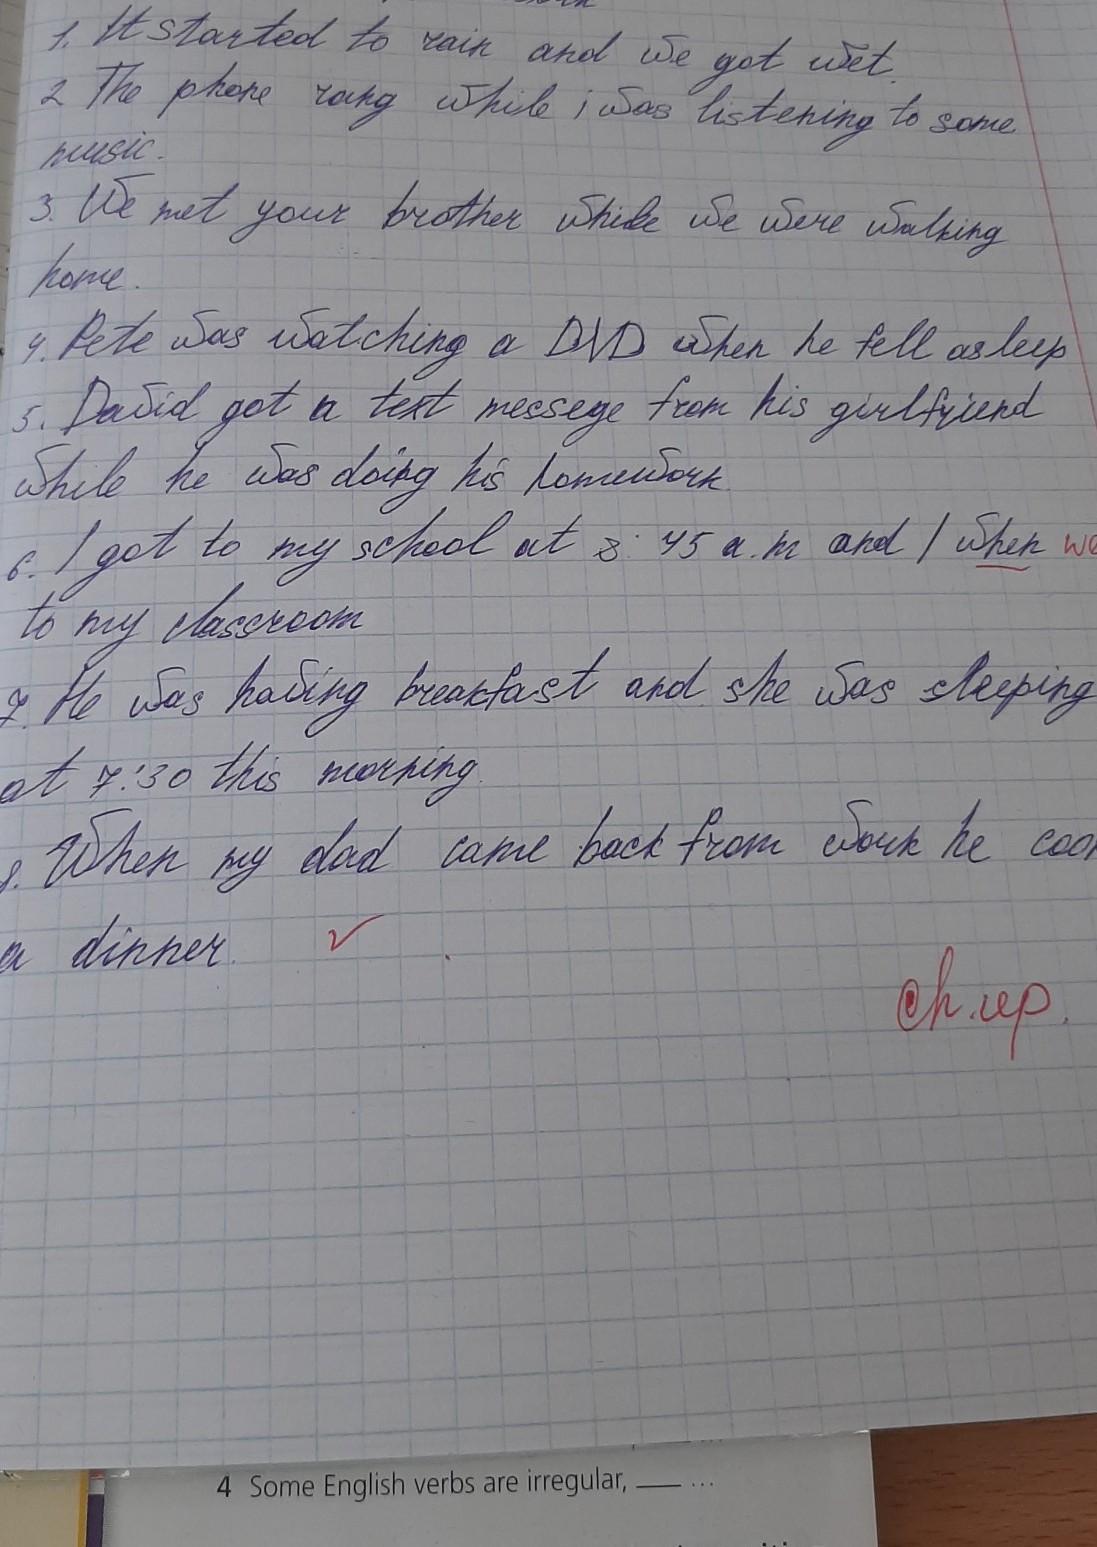 1. It started to rain and we got wet.
2 The phone rang while i was listening to some
music.
3. We met your brother while we were walking
home.
4. Pete was watching a DVD when he fell asleep
5. David got a text messege from his girlfriend
while he was doing his homework.
6. I got to my school at 8:45 a.m and I when we
to my classroom
7. He was having breakfast and she was sleeping
at 7:30 this morning.
8. When my dad came back from work he coo
a dinner. ✓
ch.up.
4 Some English verbs are irregular, ___ ...